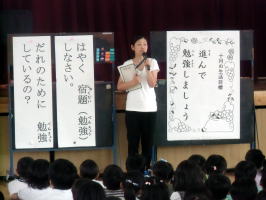 十河の生活目標
進んで
勉強しましょう
はやく宿題(勉強)
しなさい。
だれのために勉強
しているの？